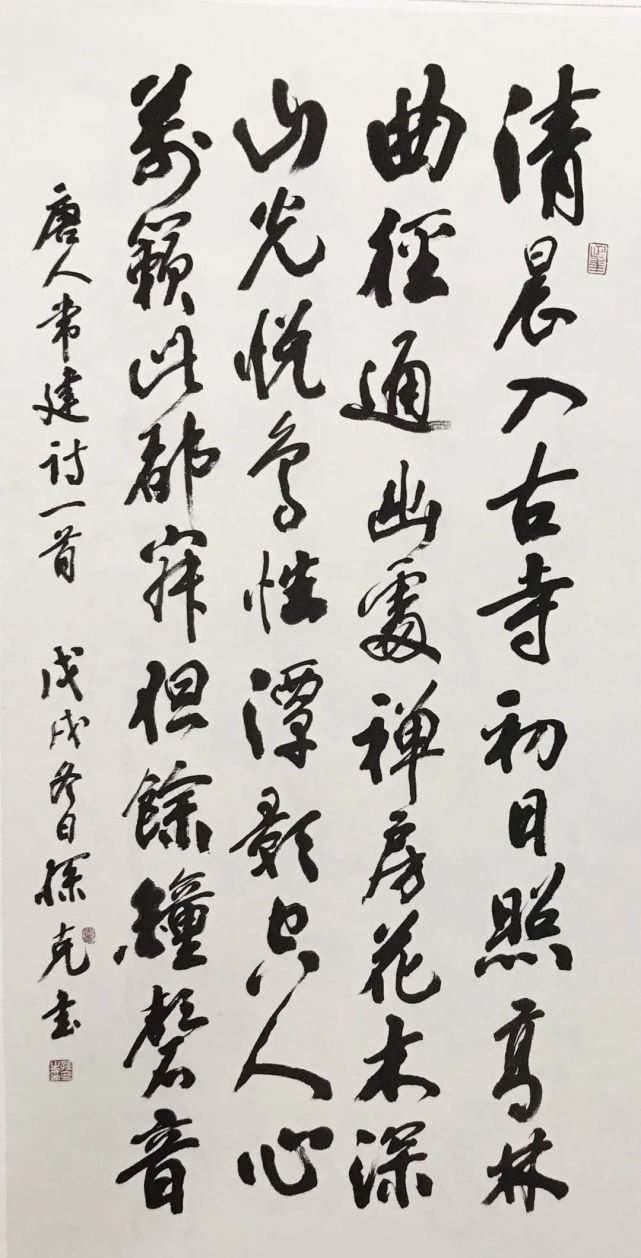 清晨入古寺初日照高林
曲徑通幽處禅房花木深
山光悦鳥性潭影空人心
萬籟此都寂但餘鐘磬音
唐人常建诗一首 戊戌冬日探克书